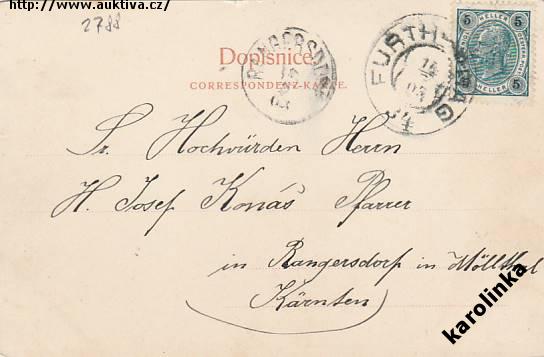 http://www.auktiva.cz/
2788
Dopisnice.
CORRESPONDENZ-KARTE.
RANGERSDORF
FURTH-PRAG
5 HELLER 5
5 HELLER 5
Sr. Hochwürden Herrn
H. Josef Konáš Pfarrer
in Rangersdorf in Möllthal
Kärnten
karolinka